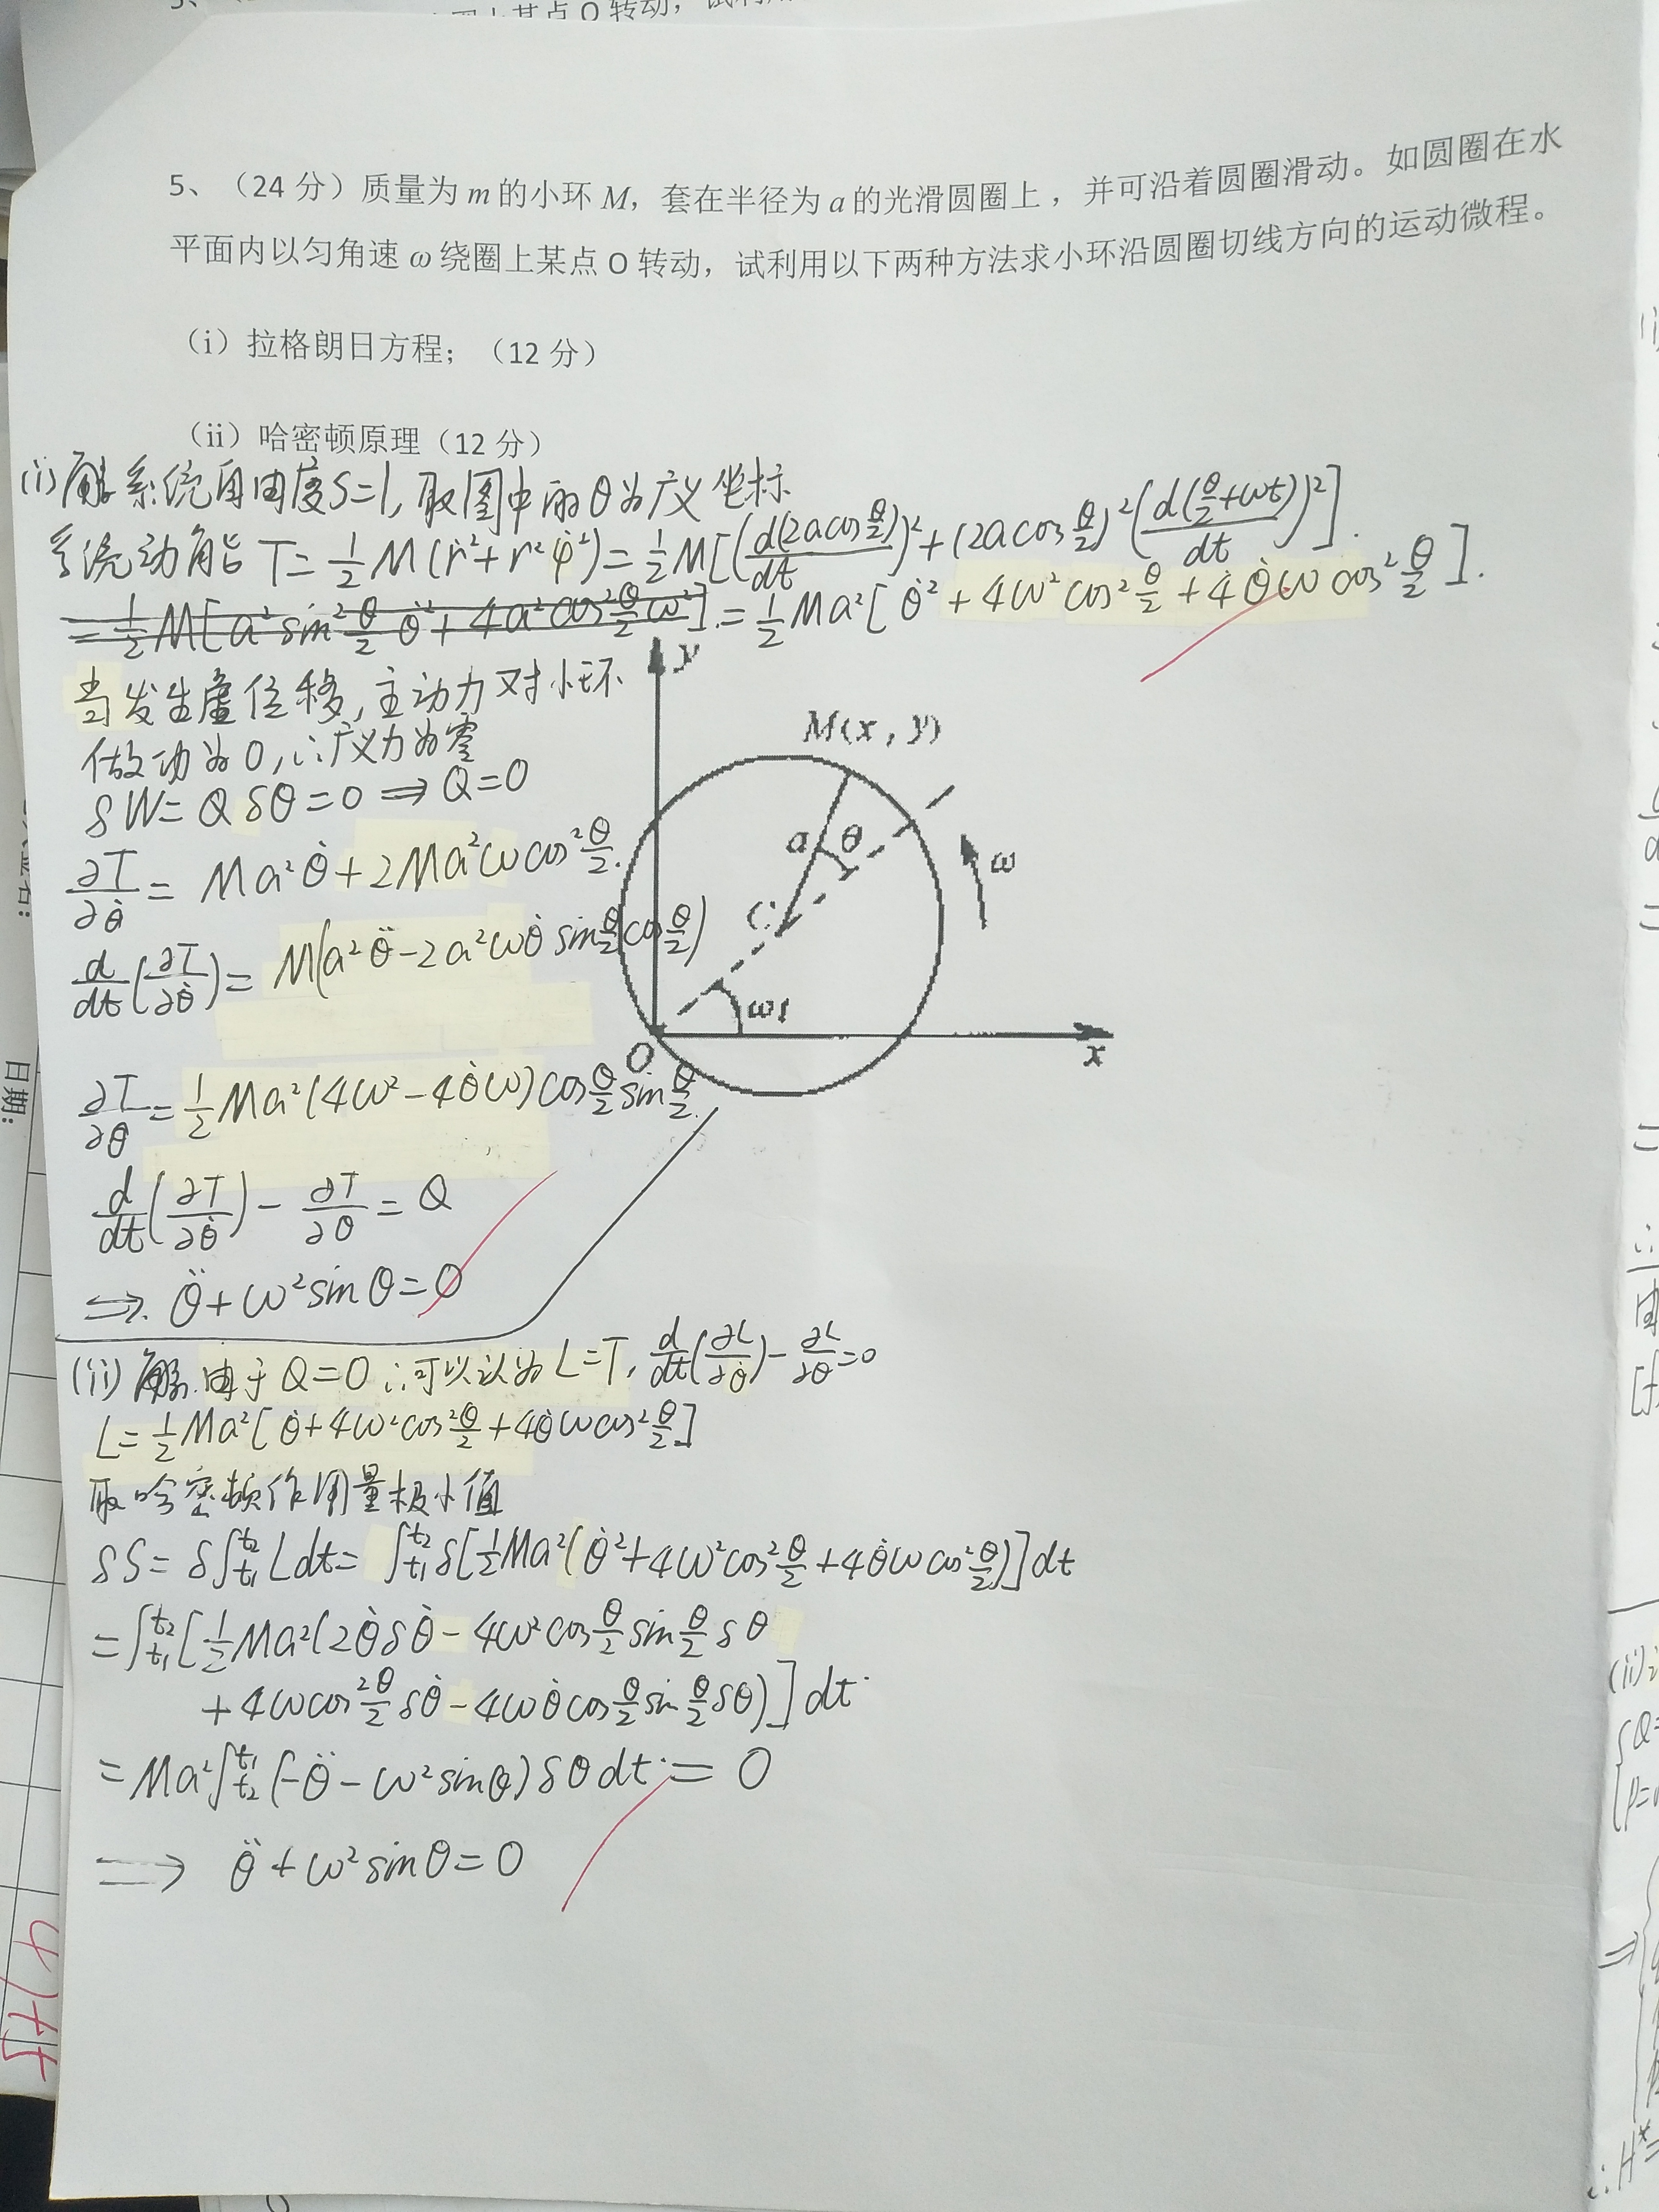 5、（24 分）质量为 m 的小环 M，套在半径为 a 的光滑圆圈上，并可沿着圆圈滑动。如圆圈在水
平面内以匀角速 ω 绕圈上某点 O 转动，试利用以下两种方法求小环沿圆圈切线方向的运动微程。
（i）拉格朗日方程；（12 分）
（ii）哈密顿原理（12 分）
(i) 解 系统自由度S=1, 取图中的θ为广义坐标
系统动能 T = 1/2 M(ṙ²+r²φ̇²) = 1/2 M[(d(2acos θ/2)/dt)² + (2acos θ/2)²(d(θ/2+ωt)/dt)²].
= 1/2 M[a² sin² θ/2 θ̇² + 4a² cos² θ/2 ω²]. = 1/2 Ma²[θ̇² + 4ω² cos² θ/2 + 4θ̇ω cos² θ/2].
当发生虚位移, 主动力对小环
做功为0, ∴广义力为零
δW = Qδθ = 0 ⇒ Q=0
∂T/∂θ̇ = Ma²θ̇ + 2Ma²ωcos² θ/2.
d/dt(∂T/∂θ̇) = M(a²θ̈ - 2a²ωθ̇ sin θ/2 cos θ/2)
∂T/∂θ = 1/2 Ma²(4ω² - 4θ̇ω)cos θ/2 sin θ/2.
d/dt(∂T/∂θ̇) - ∂T/∂θ = Q
⇒. θ̈ + ω² sinθ = 0
y
M(x, y)
a
θ
ω
C
ωt
O
x
(ii) 解. 由于 Q=0 ∴可以认为 L=T, d/dt(∂L/∂θ̇) - ∂L/∂θ = 0
L = 1/2 Ma²[θ̇ + 4ω² cos² θ/2 + 4θ̇ω cos² θ/2]
取哈密顿作用量极小值
δS = δ∫t₁t₂ L dt = ∫t₁t₂ δ[1/2 Ma²(θ̇² + 4ω² cos² θ/2 + 4θ̇ω cos² θ/2)]dt
= ∫t₁t₂ [1/2 Ma²(2θ̇δθ̇ - 4ω² cos θ/2 sin θ/2 δθ
+ 4ωcos² θ/2 δθ̇ - 4ωθ̇ cos θ/2 sin θ/2 δθ)]dt.
= Ma²∫t₂t₁ (-θ̈ - ω² sinθ)δθdt = 0
⇒ θ̈ + ω² sinθ = 0
日期: